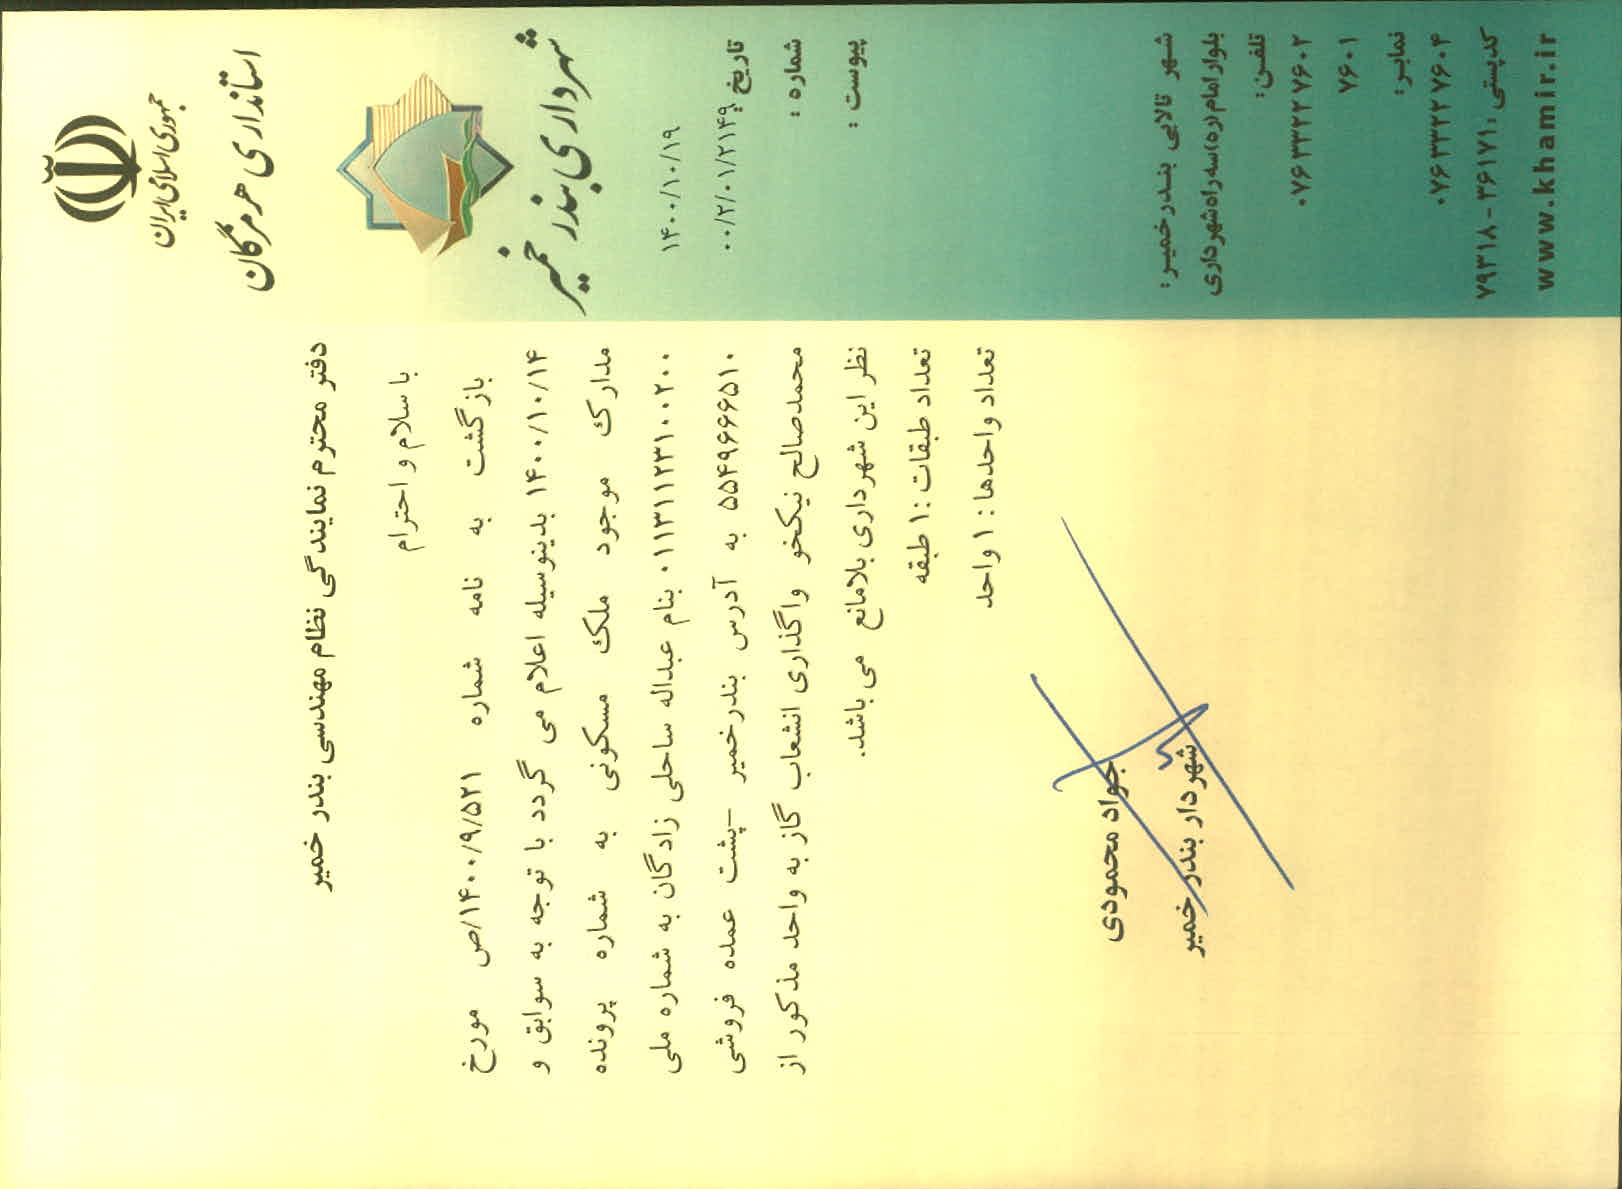 جمهوری اسلامی ایران
استانداری هرمزگان
شهرداری بندر خمیر
تاریخ :
۱۴۰۰/۱۰/۱۹
شماره :
۰۰/۲/۰۱/۲۱۴۹
پیوست :
دفتر محترم نمایندگی نظام مهندسی بندر خمیر
با سلام و احترام
بازگشت به نامه شماره ۱۴۰۰/۹/۵۲۱/ص مورخ
۱۴۰۰/۱۰/۱۴ بدینوسیله اعلام می گردد با توجه به سوابق و
مدارک موجود ملک مسکونی به شماره پرونده
۰۱۱۳۱۱۲۳۱۰۰۲۰۰ بنام عبداله ساحلی زادگان به شماره ملی
۵۵۴۹۶۶۶۵۱۰ به آدرس بندرخمیر -پشت عمده فروشی
محمدصالح نیکخو واگذاری انشعاب گاز به واحد مذکور از
نظر این شهرداری بلامانع می باشد.
تعداد طبقات :۱ طبقه
تعداد واحدها : ۱ واحد
جواد محمودی
شهردار بندر خمیر
شهر تالابی بندرخمیر:
بلوار امام (ره) سه راه شهرداری
تلفن:
۰۷۶۳۳۳۲۷۶۰۲
۷۶۰۱
نمابر:
۰۷۶۳۳۳۲۷۶۰۴
کدپستی: ۳۶۱۷۱-۷۹۳۱۸
www.khamir.ir